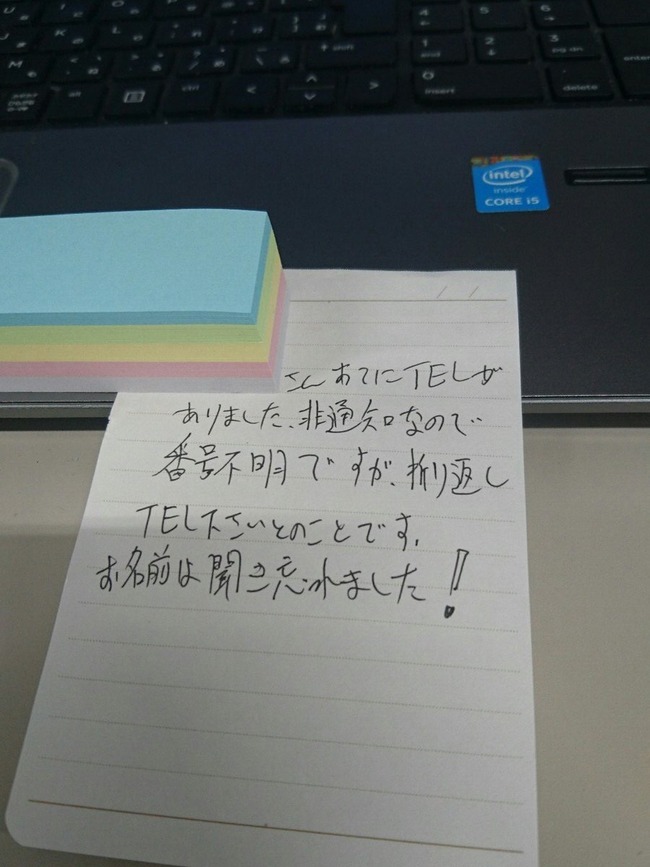 4
5
6
1
end
2
3
pg dn
enter
alt
ctrl
shift
0
insert
delete
intel
inside
CORE i5
/ /
さんあてにTELが
ありました、非通知なので
番号不明ですが、折り返し
TEL下さいとのことです。
お名前は聞き忘れました!